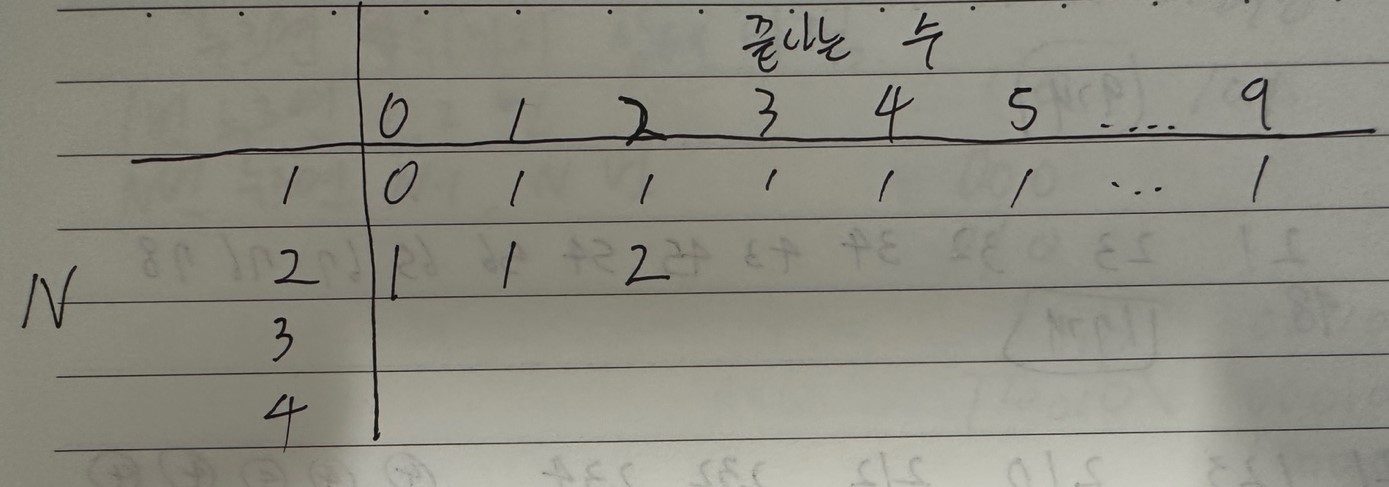 끝나는 수
0 1 2 3 4 5 .... 9
1 0 1 1 1 1 1 ... 1
N 2 1 1 2
3
4